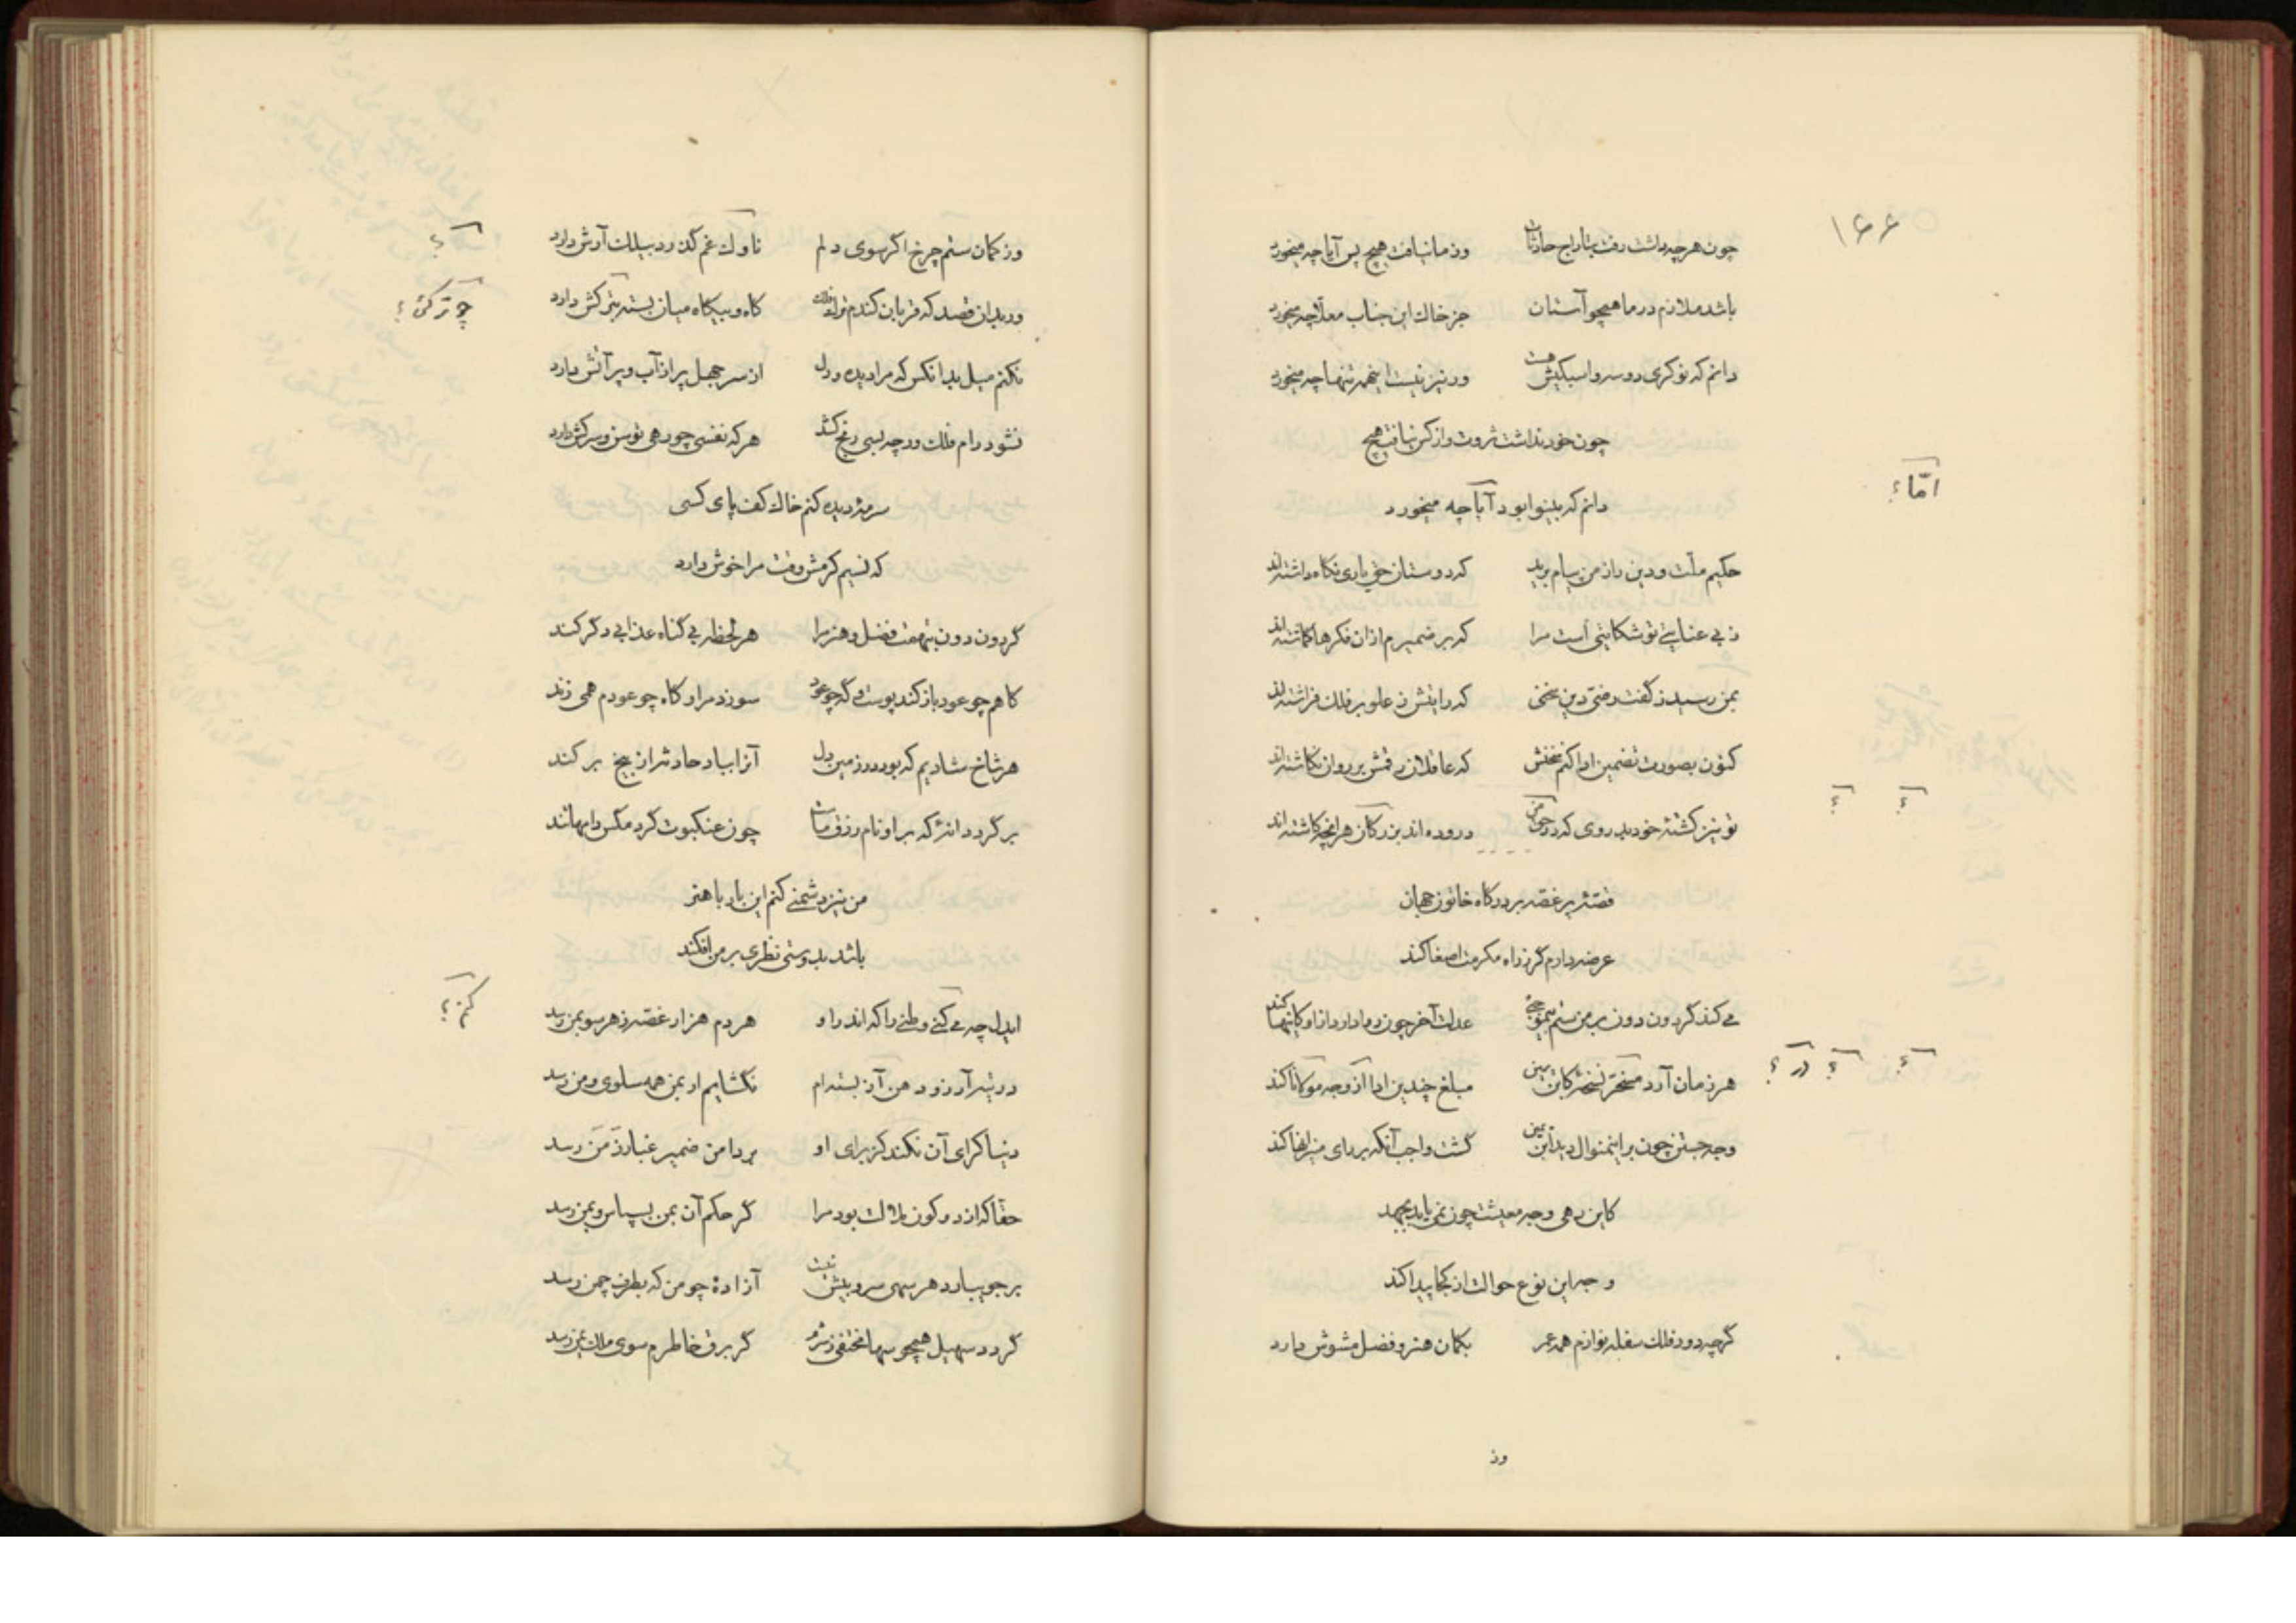 ۱۶۶
چون هرچه داشت رفت بتاراج حادثات وز ما نیافت هیچ پس آیا چه میخورد
باشد ملازم در ما همچو آستان جز خاك این جناب معلّا چه میخورد
دانم که نوکری دو سه و اسبکیش هست ور نیز نیست اینهمه تنها چه میخورد
چون خود نداشت ثروت و از کس نیافت هیچ
امّا ؟
دانم که بینوا بود آیا چه میخورد
حکیم ملّت و دین را ز من پیام برید که دوستان حق یاری نگاه داشته‌اند
ز بی عنایتی تو شکایتی است مرا که بر ضمیرم از ان فکرها گماشته‌اند
بمن رسید ز گفت رضی دین سخنی که رایتش ز علو بر فلك فراشته‌اند
کنون بصورت تضمین ادا کنم سخنش که عاقلان رقمش بر روان نگاشته‌اند
؟ ؟
تو نیز کشتهٔ خود بدروی که در حق من دروده‌اند بزرگان هر انچه کاشته‌اند
قصّهٔ پر غصّه بر درگاه خاتون جهان
عرضه دارم گر ز راه مکرمت اصغا کند
می کند گردون دون بر من ستم عدلت آخر چون روا دارد از او کاینها کند
؟ ؟ در ؟
هر زمان آرد نسخهٔ کاین ببین مبلغ چندین ادا از وجه کند
وجه جستن چون بر اینمنوال دیدم گشت واجب آنکه بر رای کند
کاین رهی وجه معیشت چون نمی یابد بجهد
وجه این نوع حوالت از کجا پیدا کند
گرچه دور فلك سفله نوازم همه عمر بگمان هنر و فضل مشوش دارد
وز
وز کمان ستم چرخ اگر سوی دلم ناوك غم گذرد بیلك آرش دارد
؟
ور بدان قصد که قربان کندم فلك گاه و بیگاه میان بسته بترکش دارد
چو ترکش ؟
نکنم میل بدانکس که مرا دیده و دل از سر جهل پر از آب و پر آتش دارد
نشود رام فلك ورچه بسی رنج کشد هر که نفسی چو رهی توسن و سرکش دارد
سرمهٔ دیده کنم خاك کف پای کسی
که نسیم کرمش وقت مرا خوش دارد
گردون دون بتهمت فضل و هنر مرا هر لحظه بی گناه عذابی دگر کند
گاهم چو عود باز کند پوست گه چو عود سوزد مرا و گاه چو عودم همی زند
هر شاخ شادیم که بود در زمین دل آنرا بباد حادثه از بیخ بر کند
بر گرد دانهٔ که بر او نام رزق ماست چون عنکبوت گرد مگس دامها تند
من نیز دشمنی کنم این بار با هنر
باشد بدوستی نظری بر من افکند
ایدل چه می کنی وطنی را که اندر او هر دم هزار غصّه ز هر سو بمن رسد
کنی ؟
در تیه آرزو دهن آز بسته‌ام نگشایم ار بمن همه سلوی و من رسد
دنیا کرای آن نکند کز برای او بر دامن ضمیر غبار ز من رسد
حقّا که از دو کون ملالت بود مرا گر حکم آن بمن بسپاس و بمن رسد
بر جویبار دهر سهی سرو بیش نیست آزادهٔ چو من که بطرف چمن رسد
گردد سهیل همچو سها مختفی ز شرم گر برق خاطرم سوی ملك یمن رسد